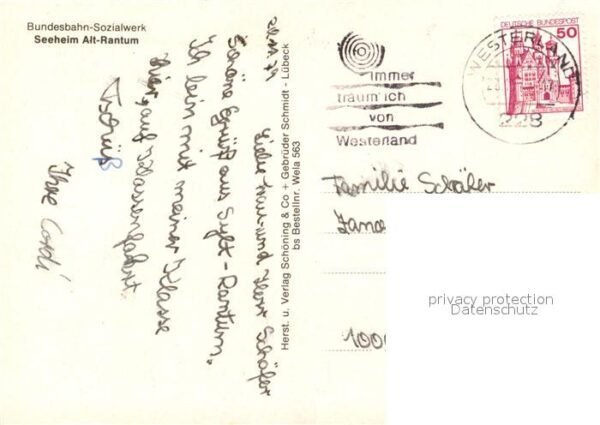 Bundesbahn-Sozialwerk
Seeheim Alt-Rantum
Liebe Frau und Herr Schäfer
Schöne Grüße aus Sylt-Rantum.
Ich bin mit meiner Klasse
hier auf Klassenfahrt
Tschüß
Ihre Cordi
Herst. u. Verlag Schöning & Co + Gebrüder Schmidt - Lübeck
bs Bestellnr. Wela 563
immer
träum' ich
von
Westerland
WESTERLAND
228
DEUTSCHE BUNDESPOST
50
Familie Schäfer
1000
privacy protection
Datenschutz